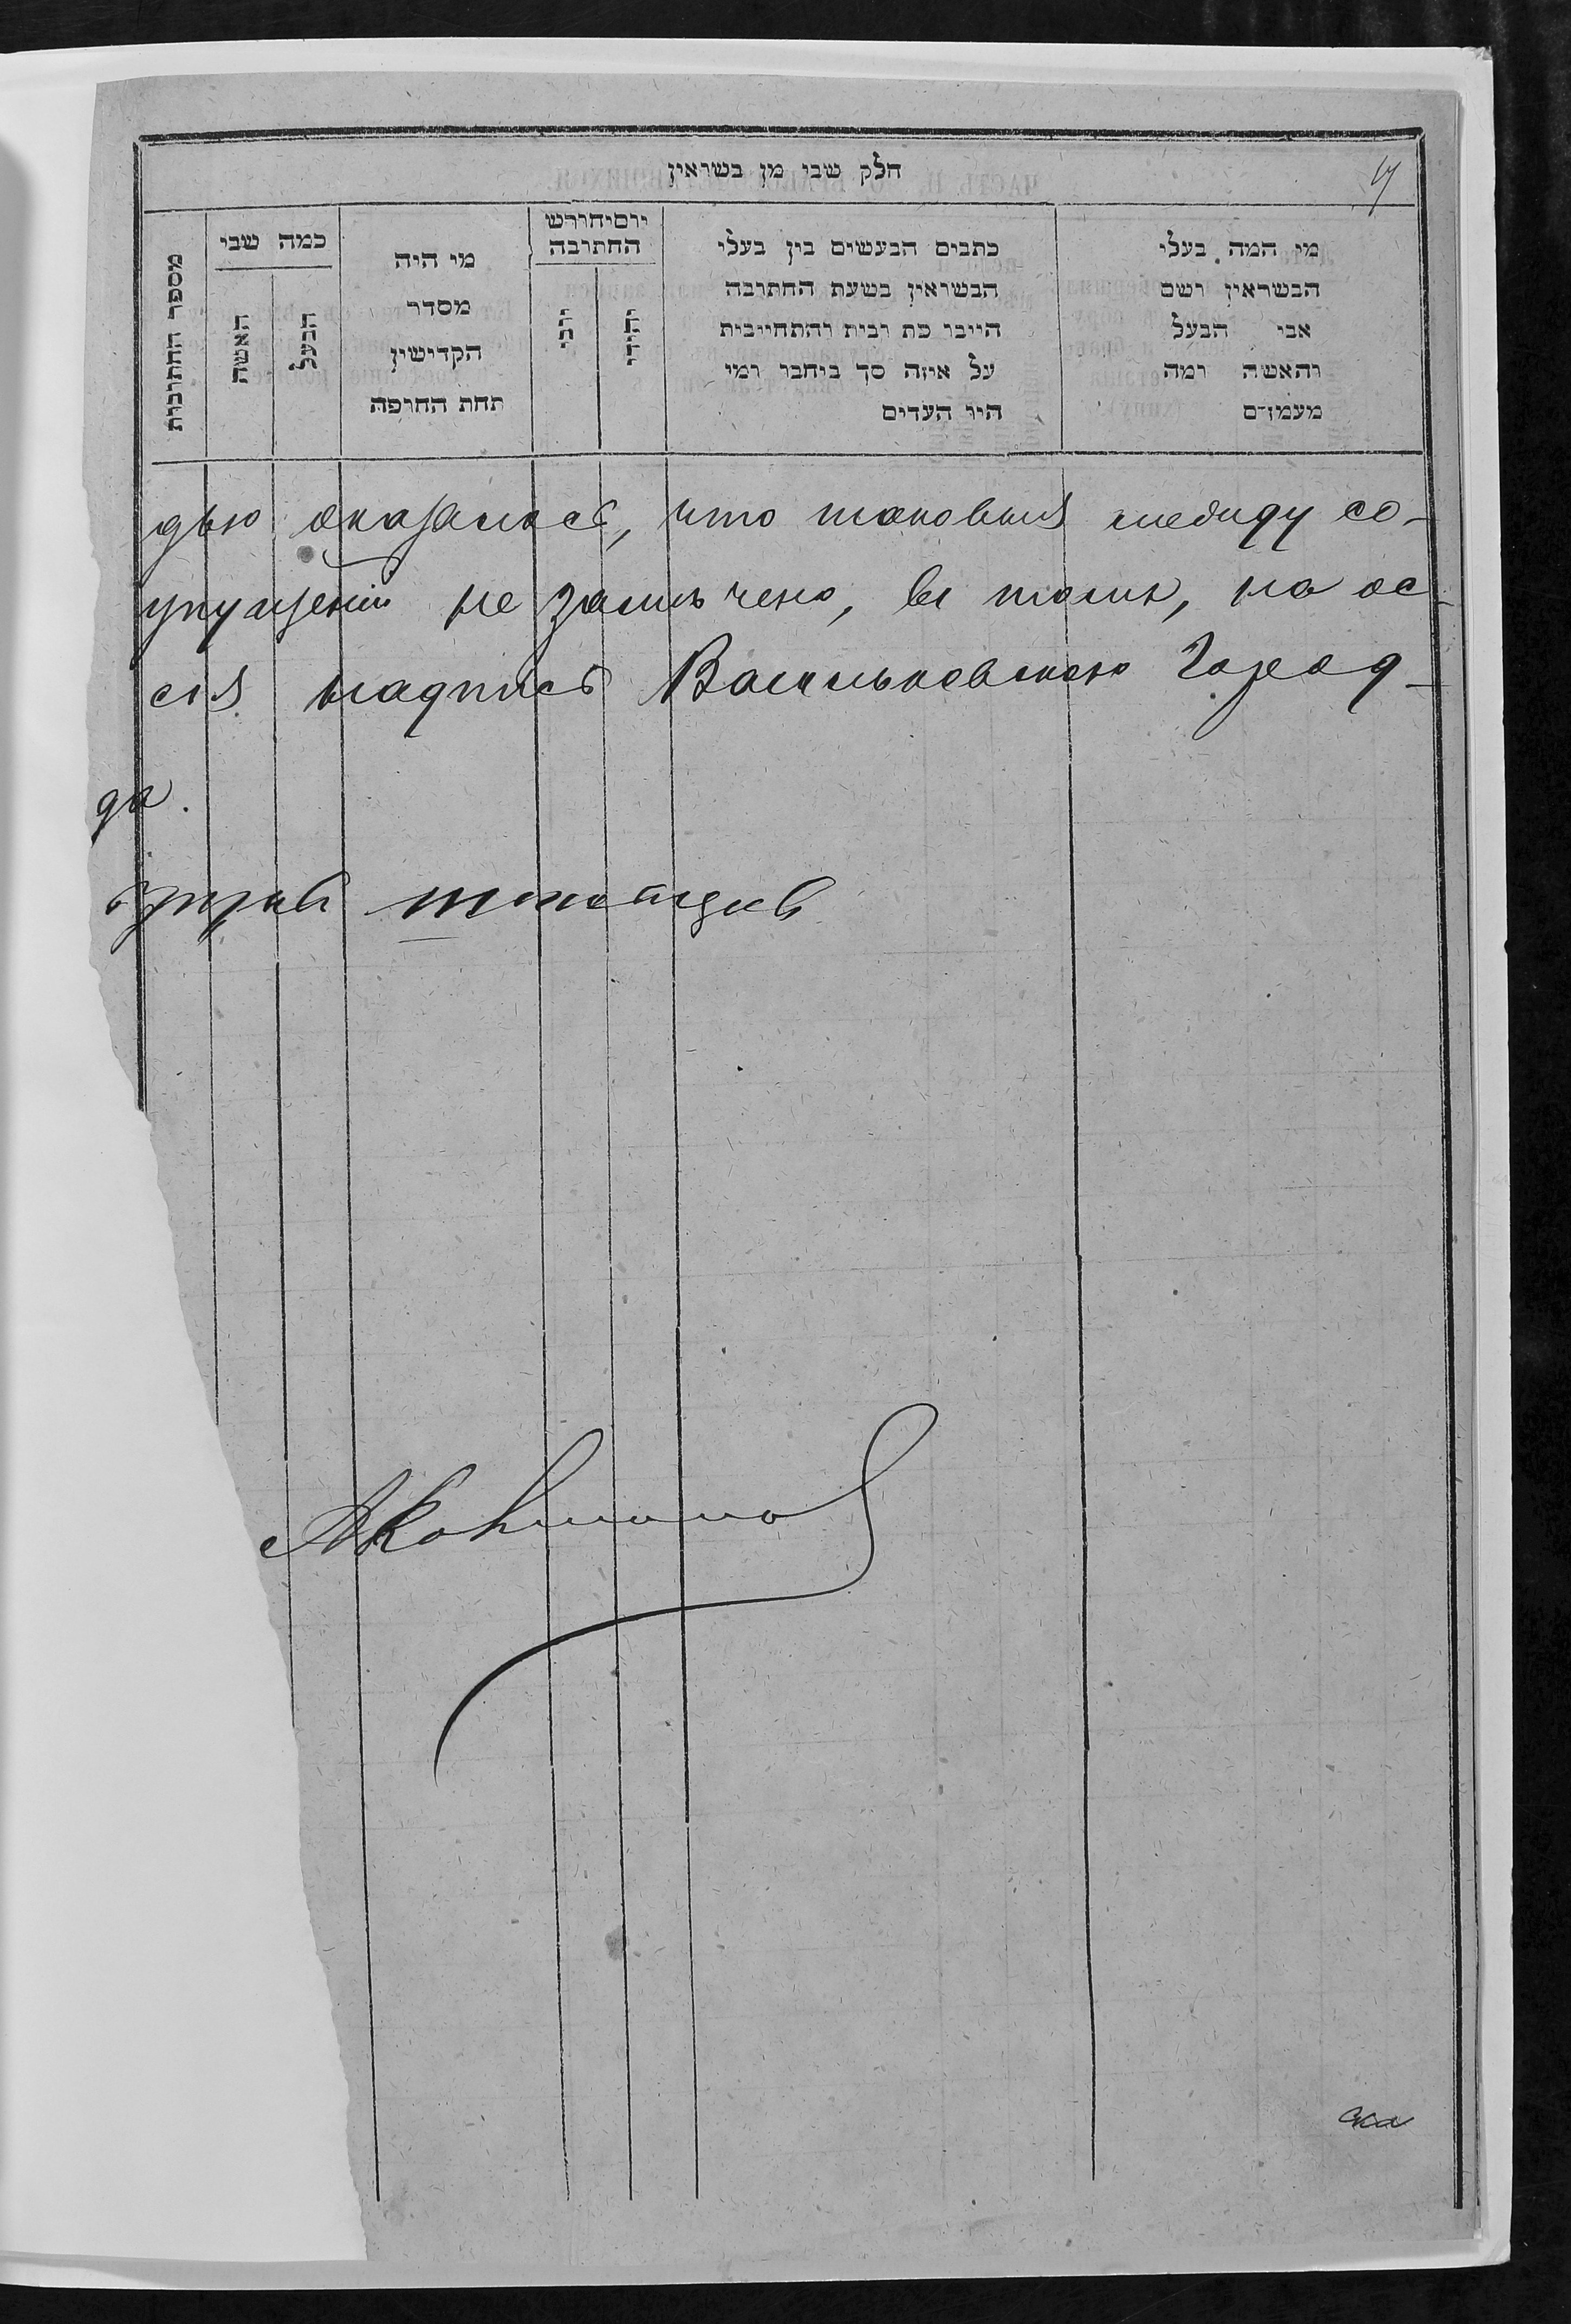 חלק שבי מן בשראין
מספר החתרבית
כמה שבי
האשה
הבעל
מי היה
מסדר
הקדישין
תחת החרפה
יוםיחורש
החתרבה
יהודי
כתבים הבעשים בין בעלי
הבשראין בשעת החתרבה
הייבר כת רבית והתחייבית
על איזה סך ביחבר רמי
היר העדים
מי המה בעלי
הבשראין רשם
אבי הבעל
והאשה רמה
מעמדם
дью оказалось, что таковыя между со-
упущеній не замѣчено, въ томъ, на ос-
сія надпись Васильковскою Город-
да.